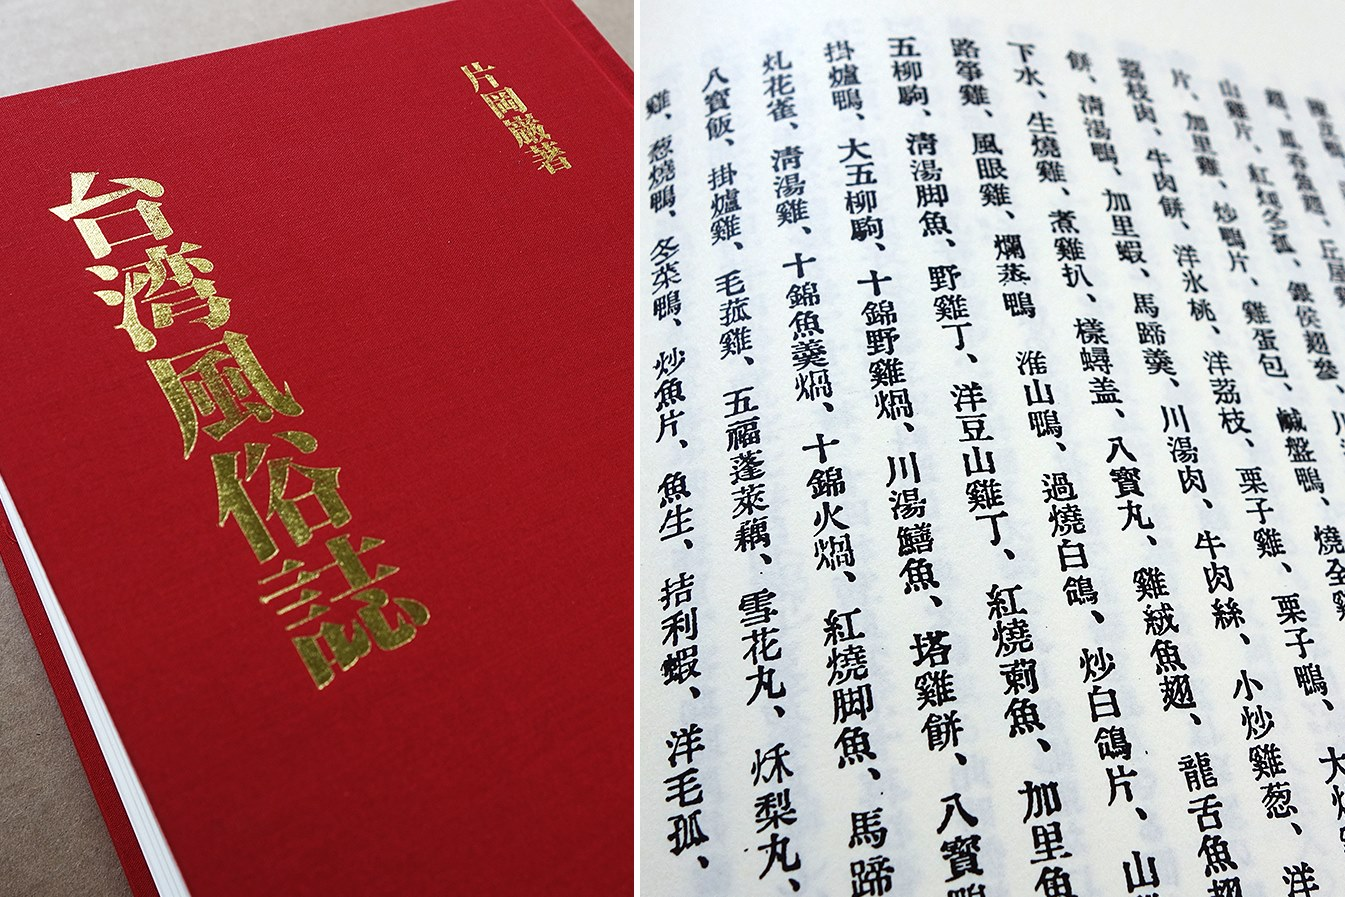 片岡巌著
台湾風俗誌
山雞片、紅
片、加里雞、炒鴨片、雞蛋包、鹹盤鴨、燒全
荔枝肉、牛肉餅、洋氷桃、洋荔枝、栗子雞、栗子鴨、大
餅、清湯鴨、加里蝦、馬蹄羹、川湯肉、牛肉絲、小炒雞葱、洋
下水、生燒雞、煮雞扒、樣蟳盖、八寶丸、雞絨魚翅、龍舌魚翅
路筝雞、風眼雞、爛蒸鴨 淮山鴨、過燒白鴿、炒白鴿片、山
五柳駒、清湯脚魚、野雞丁、洋豆山雞丁、紅燒魚、加里魚
掛爐鴨、大五柳駒、十錦野雞焗、川湯鱔魚、塔雞餅、八寶鴨
花雀、清湯雞、十錦魚羹焗、十錦火焗、紅燒脚魚、馬蹄
八寶飯、掛爐雞、毛菰雞、五福蓬萊藕、雪花丸、梨丸、
雞、葱燒鴨、冬菜鴨、炒魚片、魚生、拮利蝦、洋毛孤、